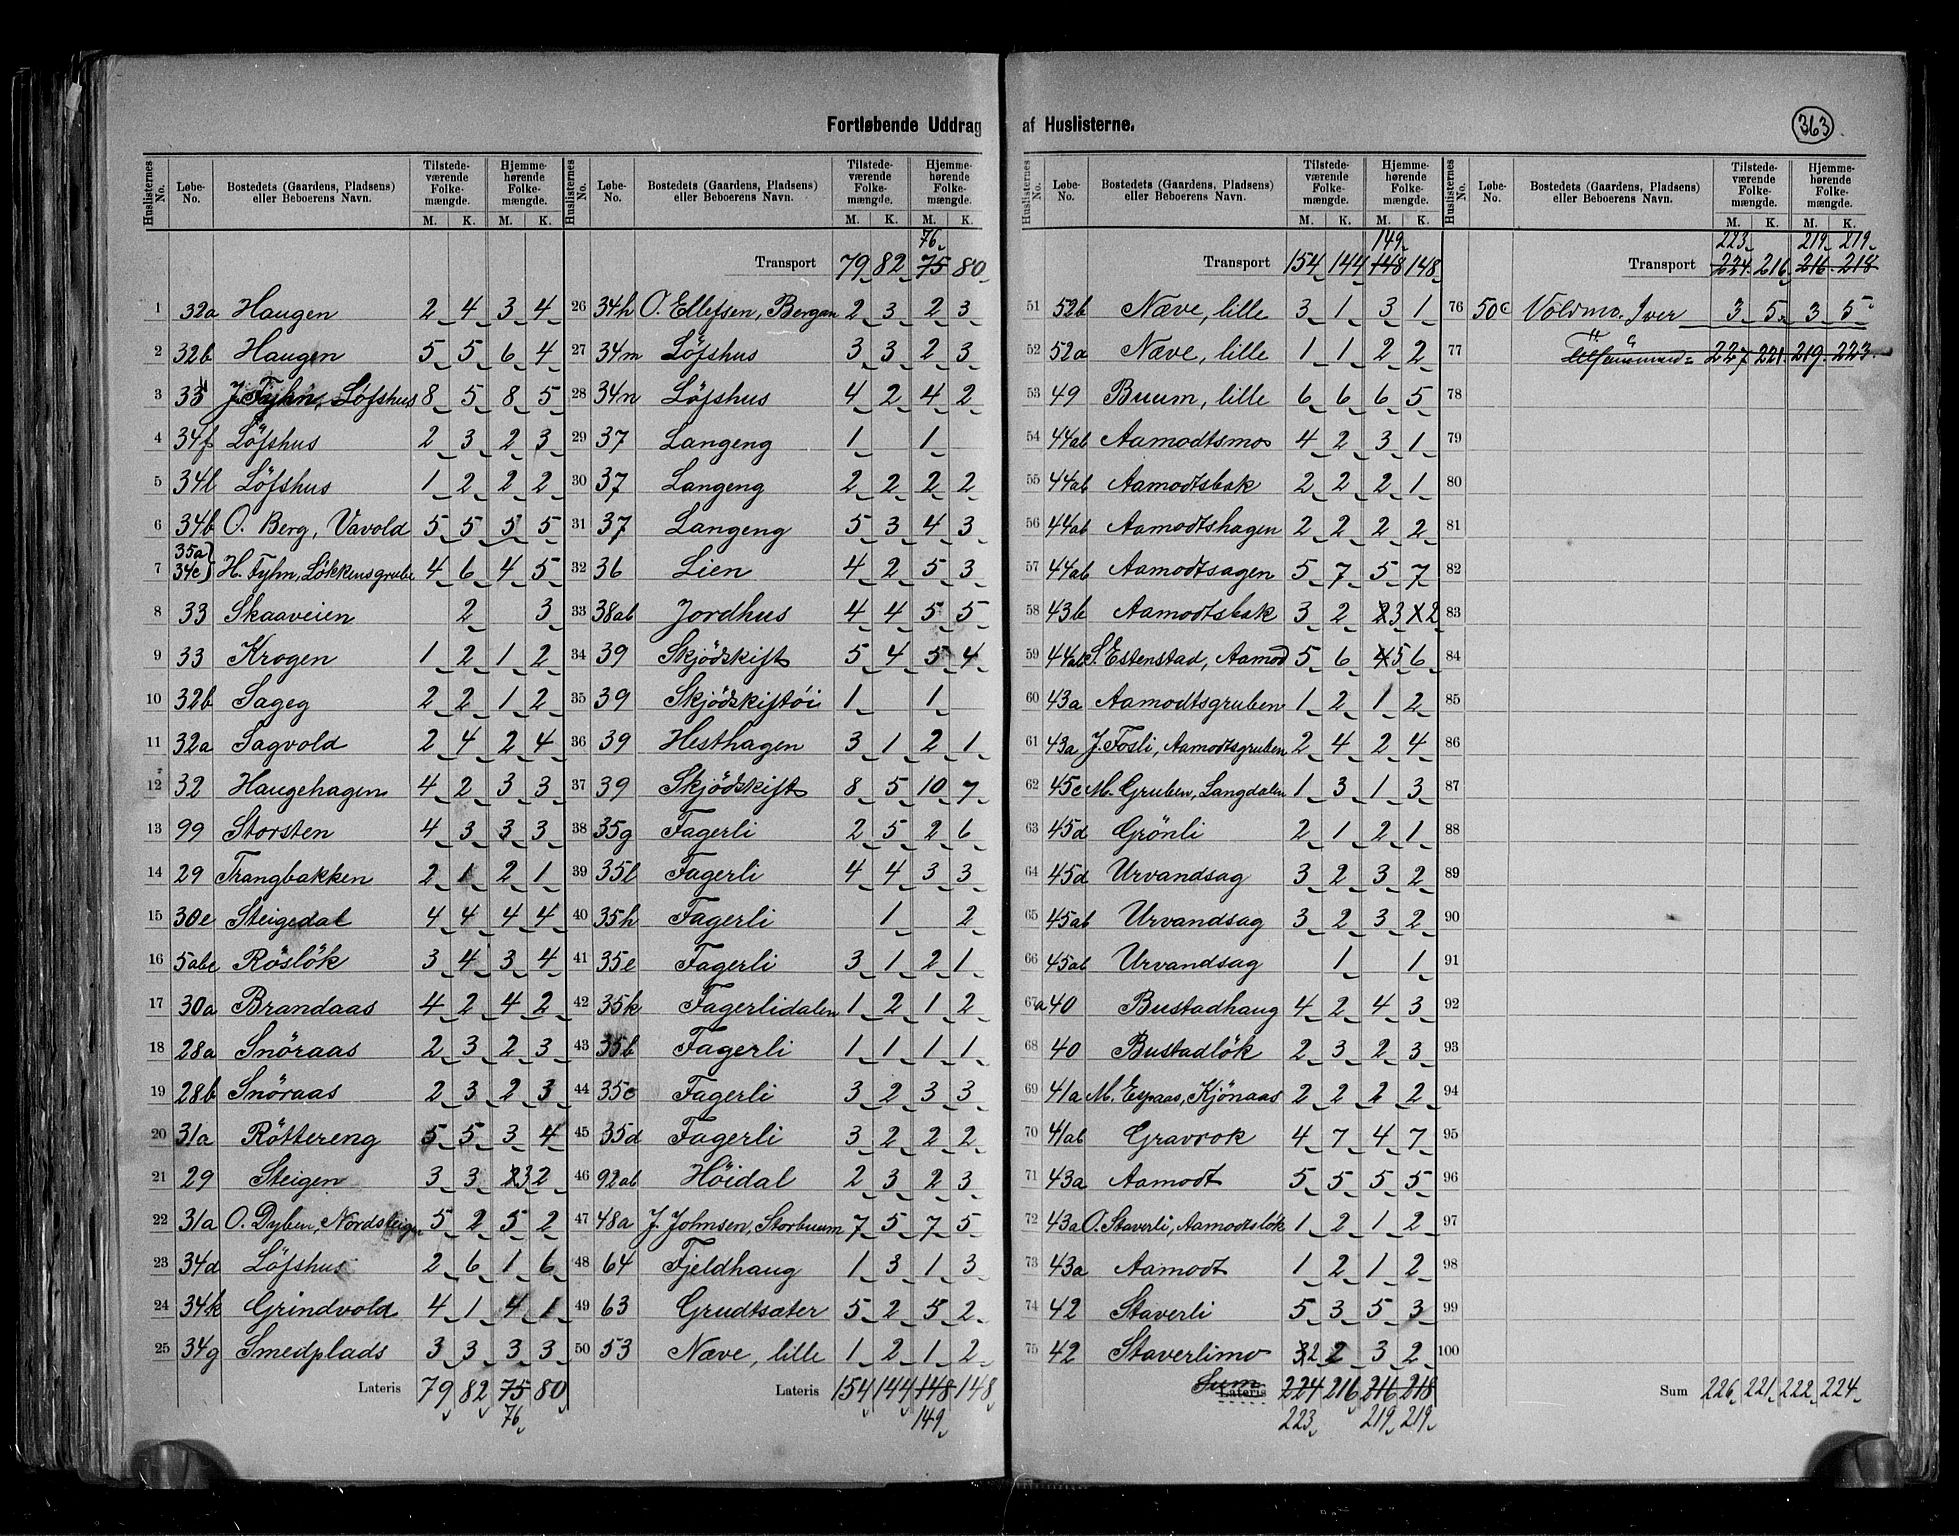 Fortløbende Uddrag af Huslisterne.
363
Huslisternes No. | Løbe-No. | Bostedets (Gaardens, Pladsens) eller Beboerens Navn. | Tilstede-værende Folke-mængde. M. K. | Hjemme-hørende Folke-mængde. M. K.
1 32a Haugen 2 4 3 4
2 32b Haugen 5 5 6 4
3 Löfshus 8 5 8 5
4 34f Löfshus 2 3 2 3
5 34l Löfshus 1 2 2 2
6 34b O. Berg, Vavold 5 5 5 5
7 35a 34c H. Fyhn, Lökkensgrube 4 6 4 5
8 33 Skaaveien 2 3
9 33 Krogen 1 2 1 2
10 32b Sageg 2 2 1 2
11 32a Sagvold 2 4 2 4
12 32 Haugehagen 4 2 3 3
13 99 Storsten 4 3 3 3
14 29 Trangbakken 2 1 2 1
15 30e Steigedal 4 4 4 4
16 5abc Röslök 3 4 3 4
17 30a Brandaas 4 2 4 2
18 28a Snöraas 2 3 2 3
19 28b Snöraas 2 3 2 3
20 31a Röttereng 5 5 3 4
21 29 Steigen 3 3 2 3 2
22 31a O. Dyben, Nordsteigen 5 2 5 2
23 34d Löfshus 2 6 1 6
24 34k Grindvold 4 1 4 1
25 34g Smedplads 3 3 3 3
Lateris 79 82 75 80
76
76
Transport 79 82 75 80
26 34h O. Ellefsen, Bergan 2 3 2 3
27 34m Löfshus 3 3 2 3
28 34n Löfshus 4 2 4 2
29 37 Langeng 1 1
30 37 Langeng 2 2 2 2
31 37 Langeng 5 3 4 3
32 36 Lien 4 2 5 3
33 38ab Jordhus 4 4 5 5
34 39 Skjödskift 5 4 5 4
35 39 Skjödskiftöi 1 1
36 39 Hesthagen 3 1 2 1
37 39 Skjödskift 8 5 10 7
38 35g Fagerli 2 5 2 6
39 35l Fagerli 4 4 3 3
40 35h Fagerli 1 2
41 35e Fagerli 3 1 2 1
42 35k Fagerlidalen 1 2 1 2
43 35b Fagerli 1 1 1 1
44 35c Fagerli 3 2 3 3
45 35d Fagerli 3 2 2 2
46 92ab Höidal 2 3 2 3
47 48a J. Johnsen, Storbuum 7 5 7 5
48 64 Fjeldhaug 1 3 1 3
49 63 Grudtsæter 5 2 5 2
50 53 Næve, lille 1 2 1 2
Lateris 154 144 148 148
149
149
Transport 154 144 148 148
51 52b Næve, lille 3 1 3 1
52 52a Næve, lille 1 1 2 2
53 49 Buum, lille 6 6 6 5
54 44ab Aamodtsmo 4 2 3 1
55 44ab Aamodtsbak 2 2 2 1
56 44ab Aamodtshagen 2 2 2 2
57 44ab Aamodtsagen 5 7 5 7
58 43b Aamodtsbak 3 2 2 3 1 2
59 44ab S. Estenstad, Aamod 5 6 4 5 6
60 43a Aamodtsgruben 1 2 1 2
61 43a J. Fosli, Aamodtsgruben 2 4 2 4
62 45c M. Gruben, Langdalen 1 3 1 3
63 45d Grönli 2 1 2 1
64 45d Urvandsag 3 2 3 2
65 45ab Urvandsag 3 2 3 2
66 45ab Urvandsag 1 1
67a 40 Bustadhaug 4 2 4 3
68 40 Bustadlök 2 3 2 3
69 41a M. Espaas, Kjönaas 2 2 2 2
70 41ab Gravrok 4 7 4 7
71 43a Aamodt 5 5 5 5
72 43a O. Staverli, Aamodtslök 1 2 1 2
73 43a Aamodt 1 2 1 2
74 42 Staverli 5 3 5 3
75 42 Staverlimo 3 2 2 3 2
Sum Lateris 224 216 216 218
223 219 219
223 219 219
Transport 224 216 216 218
76 50c Voldmo, Iver 3 5 3 5
77 227 221 219 223
78
79
80
81
82
83
84
85
86
87
88
89
90
91
92
93
94
95
96
97
98
99
100
Sum 226 221 222 224